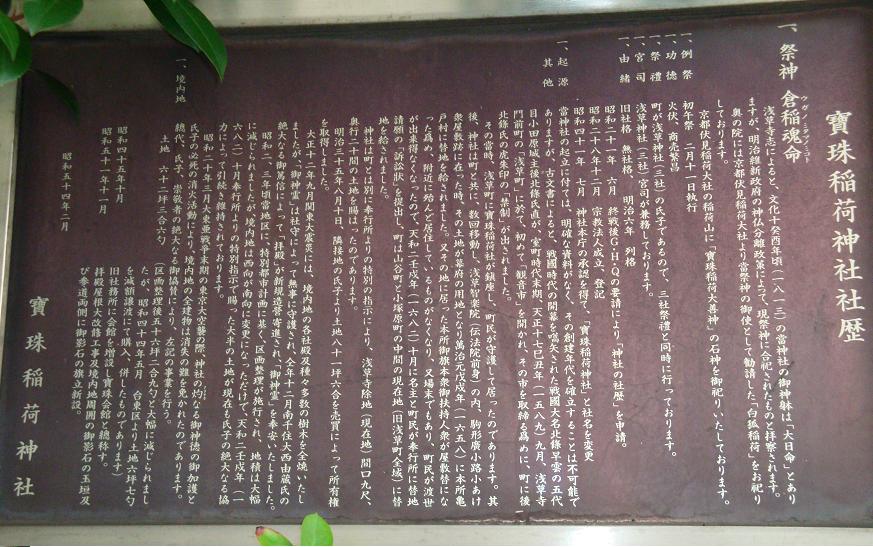 寶珠稲荷神社社歴
一、祭神 倉稲魂命
ウガノミタマノミコト
浅草寺志によると、文化十癸酉年(一八一三)の當神社の御神躰は「大日命」とあり
ますが、明治維新政府の神仏分離政策によって、現祭神に合祀されたものと拝察されます。
奥の院には京都伏見稲荷大社より當祭神の御使として勧請した「白狐稲荷」をお祀り
しております。
京都伏見稲荷大社の稲荷山に「寶珠稲荷大善神」の石神を御祀りいたしております。
一、例祭 初午祭 二月十一日執行
一、功徳 火伏、商売繁昌
一、祭禮 町が浅草神社(三社)の氏子であるので、三社祭禮と同時に行っております。
一、宮司 浅草神社(三社)宮司が兼務しております。
一、由緒 旧社格 無社格 明治六年 列格
昭和二十一年 六月 終戦後G・H・Qの要請により「神社の社歴」を申請。
昭和二十八年十二月 宗教法人成立、登記
昭和四十一年 七月 神社本庁の承認を得て、「寶珠稲荷神社」と社名を変更
一、起源 當神社の起立に付ては、明確な資料がなく、その創建年代を確立することは不可能で
其他 ありますが、古文書によると、戦國時代の開幕を喘矢された戦國大名北條早雲の五代
目小田原城主後北條氏直が、室町時代末期、天正十七己丑年(一五八九)九月、浅草寺
門前町の「浅草町」に於て、初めて「観音市」を開かれ、その市を取締る爲めに、町に後
北條氏の虎朱印の「禁制」が出されました。
その當時、浅草町に寶珠稲荷社が鎮座し、町民が守護して居ったのであります。其
後、神社は町と共に、数回移動し、浅草智楽院(伝法院前身)の内、駒形廣小路小あけ
衆屋敷跡に在った時、その土地が幕府の用地となり萬治元戊戌年(一六五八)に本所亀
戸村に替地を給されました。又その地に居った本所御旗本衆御扶持人衆が屋敷替にな
った爲め、附近に殆んど居住しているものがなくなり、又場末でもあり、町民が渡世
が出来得なくなったので、天和二壬戌年(一六八二)十月に名主と町民が奉行所に替地
請願の「訴訟状」を提出し、町は山谷町と小塚原町の中間の現在地(旧浅草町全域)に替
地を給されました。
神社は町とは別に奉行所よりの特別の指示により、浅草寺除地(現在地)間口九尺、
奥行二十間の土地を賜ったのであります。
明治三十五年八月十日 隣接地の氏子より土地八十一坪六合を売買によって所有権
を取得しました。
大正十二年九月関東大震災には、境内地の各社殿及種々多数の樹木を全焼いたし
ましたが「御神霊」は社守によって無事に守護され、仝年十二月南千住大西由蔵氏の
絶大なる御篤信によって「拝殿」が新規造営寄進され、「御神霊」を奉安いたしました。
昭和二、三年頃當地区に、特別都市計画に基く、区画整理が施行され、地積は大幅
に減じられましたが、境内地は西向が南向に変更になっただけで、天和二壬戌年(一
六八二)十月奉行所よりの特別指示で賜った大半の土地が現在も氏子の絶大なる協
力によって引続き維持されております。
昭和二十年三月大東亜戦争末期の東京大空襲の際、神社の灼なる御神徳の御加護と
氏子の必死の消火活動により、境内地の全建物は消失の難を免かれたのであります。
総代、氏子、崇敬者の絶大なる御協賛により、左記の事業を行う。
一、境内地 土地 六十二坪三合六勺 (区画整理後五十六坪二合九勺と大幅に減じられまし
たが、昭和四十四年五月 台東区より土地六坪七勺
を減額譲渡にて購入、併したものであります)
昭和四十五年十月 旧社務所に会館を増設し寶珠会館と總称す。
昭和五十一年十一月 拝殿屋根大改修工事及境内地周囲の御影石の玉垣及
び参道両側に御影石の旗立新設。
昭和五十四年二月
寶珠稲荷神社